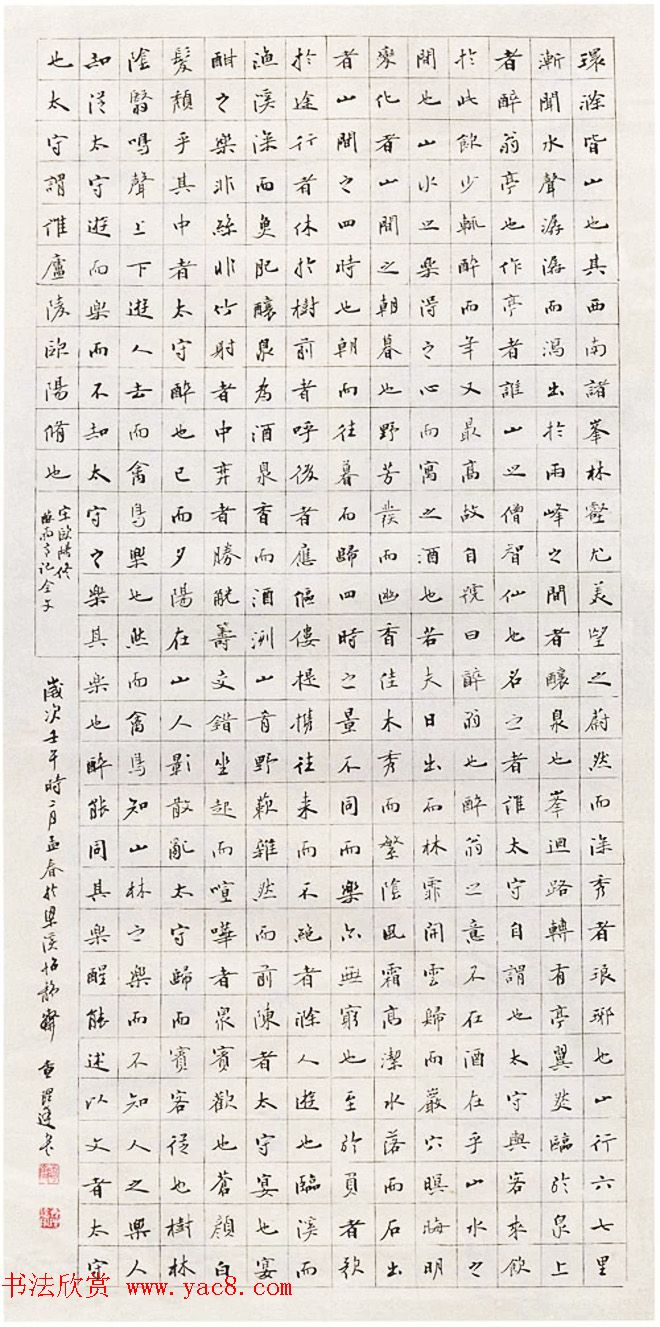 環滁皆山也其西南諸峯林壑尤美望之蔚然而深秀者琅琊也山行六七里
漸聞水聲潺潺而瀉出於兩峰之間者釀泉也峯迴路轉有亭翼然臨於泉上
者醉翁亭也作亭者誰山之僧智仙也名之者誰太守自謂也太守與客來飲
於此飲少輒醉而年又最高故自號曰醉翁也醉翁之意不在酒在乎山水之
間也山水之樂得之心而寓之酒也若夫日出而林霏開雲歸而巖穴暝晦明
變化者山間之朝暮也野芳發而幽香佳木秀而繁陰風霜高潔水落而石出
者山間之四時也朝而往暮而歸四時之景不同而樂亦無窮也至於負者歌
於途行者休於樹前者呼後者應傴僂提攜往來而不絕者滁人遊也臨溪而
漁溪深而魚肥釀泉為酒泉香而酒洌山肴野蔌雜然而前陳者太守宴也宴
酣之樂非絲非竹射者中弈者勝觥籌交錯坐起而喧嘩者眾賓歡也蒼顏白
髮頹乎其中者太守醉也已而夕陽在山人影散亂太守歸而賓客從也樹林
陰翳鳴聲上下遊人去而禽鳥樂也然而禽鳥知山林之樂而不知人之樂人
知從太守遊而樂而不知太守之樂其樂也醉能同其樂醒能述以文者太守
也太守謂誰廬陵歐陽脩也
宋歐陽修
醉翁亭記全文
歲次壬午時二月孟春於梁溪怡靜齋
书法欣赏 www.yac8.com